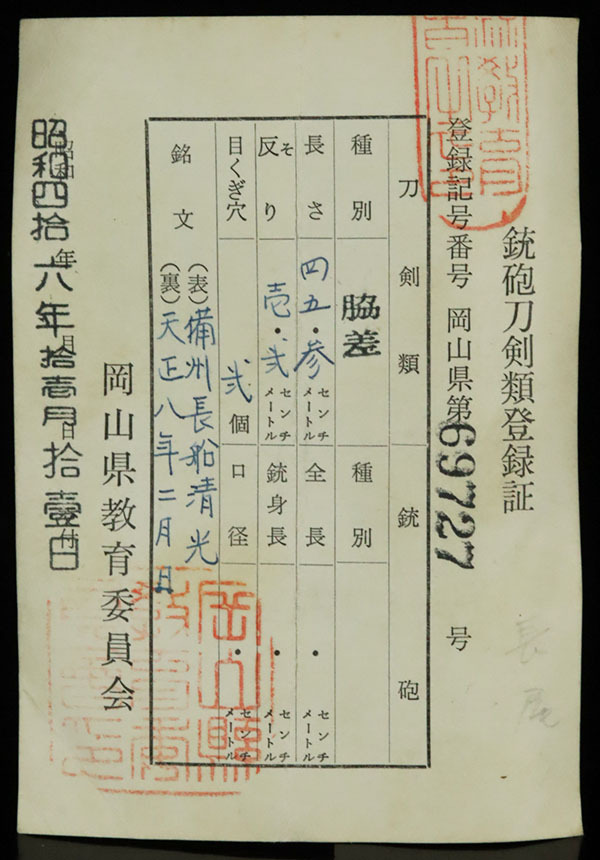 銃砲刀剣類登録証
登録記号番号 岡山県第69727号
刀剣類 銃砲
種別 脇差 種別
長さ 四五・参センチメートル 全長 ・ センチメートル
反り 壱・弐センチメートル 銃身長 ・ センチメートル
そ
目くぎ穴 弐個 口径 ・ センチメートル
銘文 (表)備州長船清光
(裏)天正八年二月日
岡山県教育委員会
昭和四拾八年拾壱月拾壹日